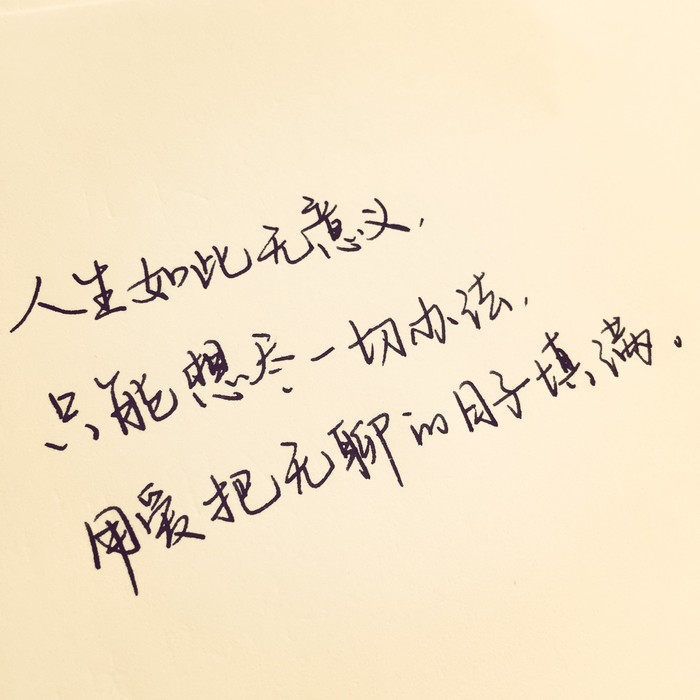 人生如此无意义,
只能想尽一切办法,
用爱把无聊的日子填满.